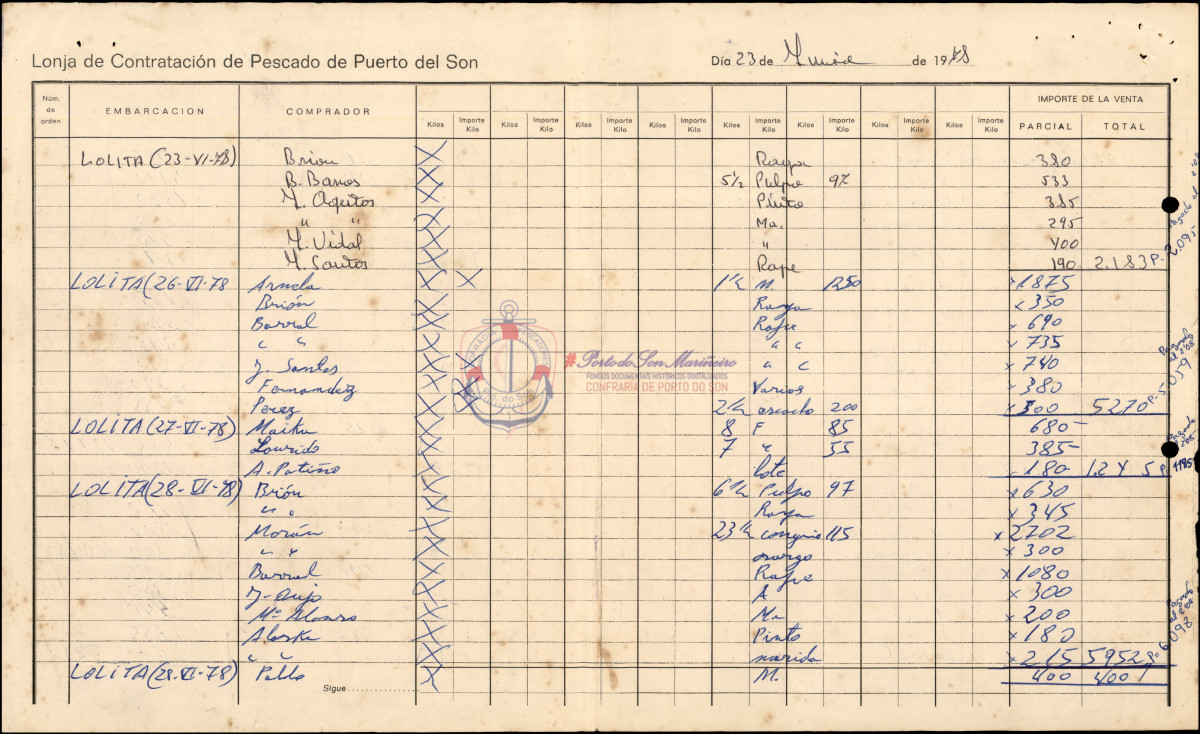 Lonja de Contratación de Pescado de Puerto del Son Día 23 de de 1978
Núm. de orden EMBARCACION COMPRADOR Kilos Importe Kilo Kilos Importe Kilo Kilos Importe Kilo Kilos Importe Kilo Kilos Importe Kilo Kilos Importe Kilo Kilos Importe Kilo Kilos Importe Kilo IMPORTE DE LA VENTA PARCIAL TOTAL
LOLITA (23-VI-78) Brion X Raya 380
B. Barros X 5 1/2 Pulpo 97 533
M. Ageitos X Pinto 385
" " X Ma. 295
M. Vidal X " 400
M. Santos X Rape 190 2.183 P.
LOLITA (26-VI-78 Arnela X X 1 1/2 M. 1250 x 1875
Brión X Raya x 350
Barral X Rape x 690
" " X " " x 735
J. Santos X X " " x 740
Fernandez X X Varios x 380
Perez X X 2 1/2 200 x 500 5270 P.
LOLITA (27-VI-78) Maika X 8 F 85 680-
Lourido X 7 " 55 385-
A. Patiño X lote 180 1.245 P.
LOLITA (28-VI-78) Brión X 6 1/2 Pulpo 97 x 630
" " X Raya x 345
Morán X 23 1/2 congrio 115 x 2702
" " X x 300
Barral X Rape x 1080
X A x 300
Mª Alonso X Ma x 200
Alaska X Pinto x 180
" " X x 215 5952 P.
LOLITA (29-VI-78) Pablo X M. 400 400
Sigue
2.095
5.059
1185
6.092
COFRADIA PESCADORES
Pto. do Son
#Porto do Son Mariñeiro
FONDOS DOCUMENTAIS HISTÓRICOS DIXITALIZADOS
CONFRARÍA DE PORTO DO SON